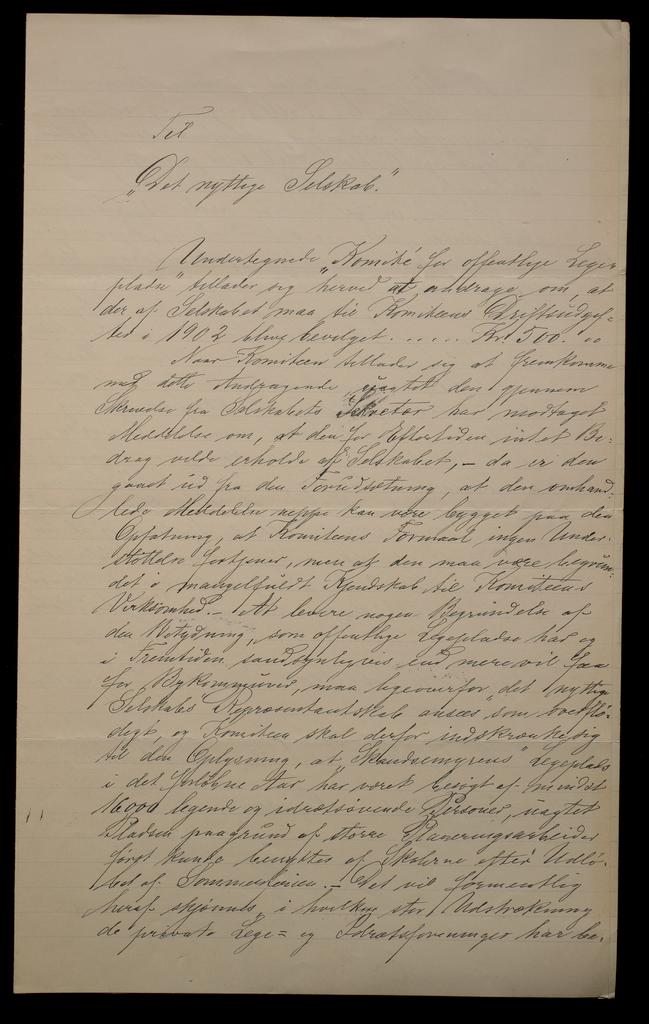 Til
"Det nyttige Selskab."
Undertegnede "Komité for offentlige Lege-
pladse" tillader sig herved at andrage om, at
der af Selskabet maa til Komiteens Driftsudgif-
ter i 1902 blive bevilget..... Kr. 500.00
Naar Komiteen tillader sig at fremkomme
med dette Andragende uagtet den gjennem
Skrivelse fra Selskabets Sekretær har modtaget
Meddelelse om, at den for Eftertiden intet Bi-
drag vilde erholde af Selskabet, - da er den
gaaet ud fra den Forudsætning, at den omhand-
lede Meddelelse neppe kan være bygget paa den
Opfatning, at Komiteens Formaal ingen Under-
støttelse fortjener, men at den maa være begrun-
det i mangelfuldt Kjendskab til Komiteens
Virksomhed. - At levere nogen Begrundelse af
den Betydning, som offentlige Legepladse har og
i Fremtiden sandsynligvis end mere vil faa
for Bykommuner, maa ligeoverfor det nyttige
Selskabs Repræsentantskab ansees som overflø-
digt, og Komiteen skal derfor indskrænke sig
til den Oplysning, at "Skandsemyrens" Legeplads
i det forløbne Aar har været besøgt af mindst
16000 legende og idrætsøvende Personer, uagtet
Pladsen paagrund af større Planeringsarbeider
først kunde benyttes af Skolerne efter Udlø-
bet af Sommerferien. - Det vil formentlig
heraf skjønnes, i hvilken stor Udstrækning
de private Lege- og Idrætsforeninger har be-